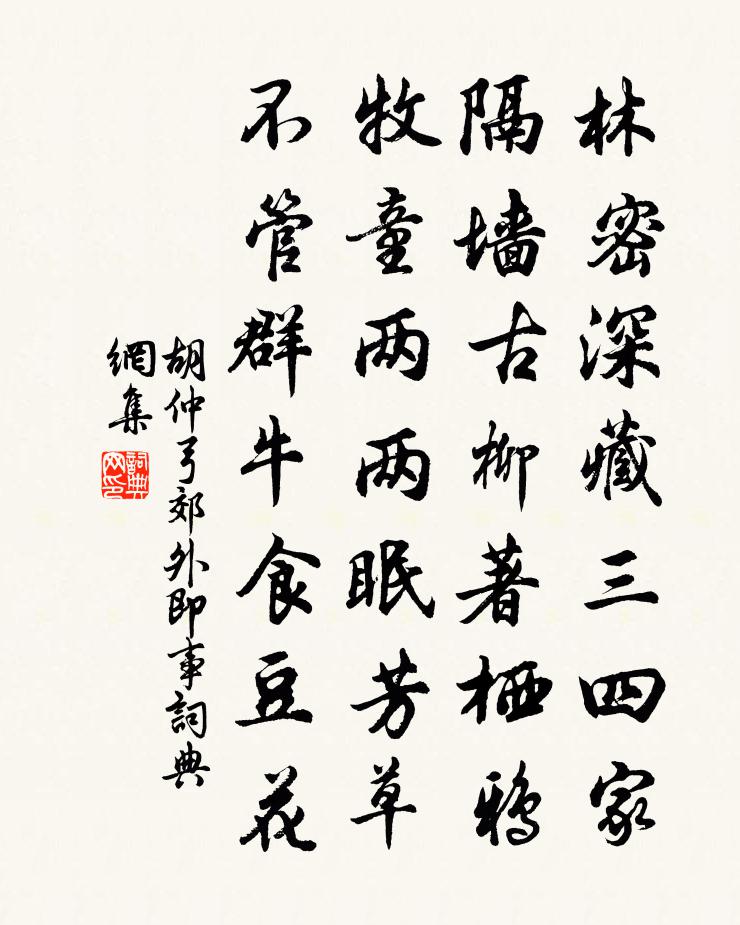 林密深藏三四家
隔墙古柳著栖鸦
牧童两两眠芳草
不管群牛食豆花
胡仲弓郊外即事詞典
網集
詞典
网印